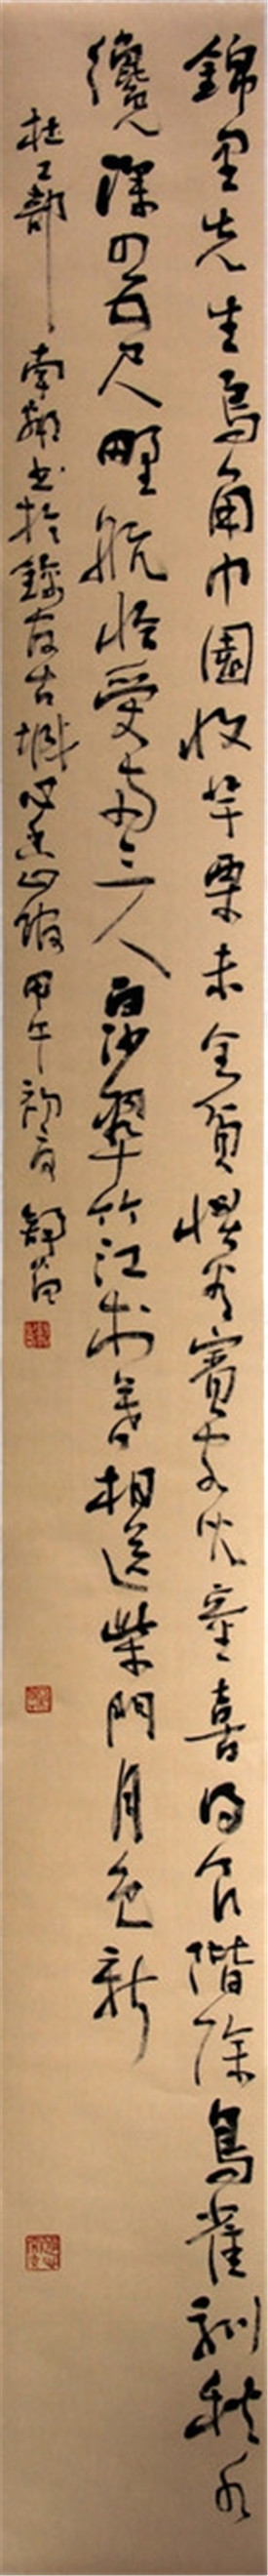 錦里先生烏角巾園收芋栗未全貧慣看賓客兒童喜得食階除鳥雀馴秋水
纔深四五尺野航恰受兩三人白沙翠竹江村暮相送柴門月色新
杜工部南鄰書於錦官古城山館甲午初夏